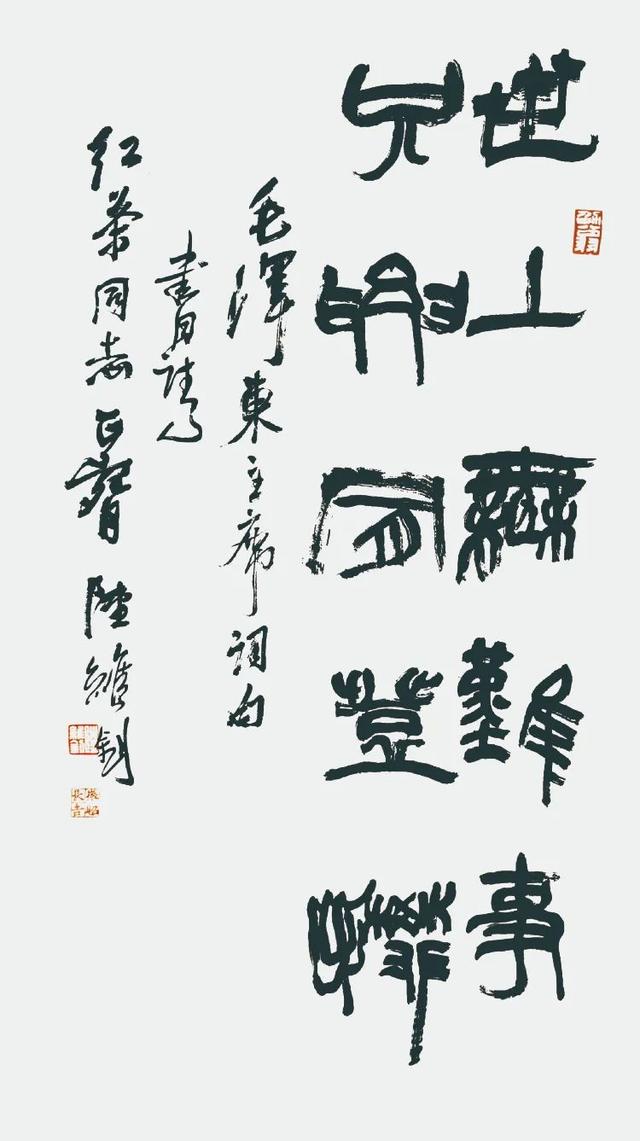 世上無難事
只要肯登攀
毛澤東主席詞句
書請
紅同志正
陸維釗